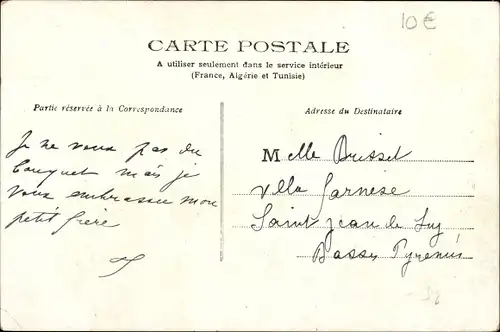 10€
CARTE POSTALE
A utiliser seulement dans le service intérieur
(France, Algérie et Tunisie)
Partie réservée à la Correspondance
Adresse du Destinataire
Je ne veux pas du
bouquet mais je
veux embrasser mon
petit frère
Melle Brisset
Villa Farnèse
Saint Jean de Luz
Basses Pyrénées